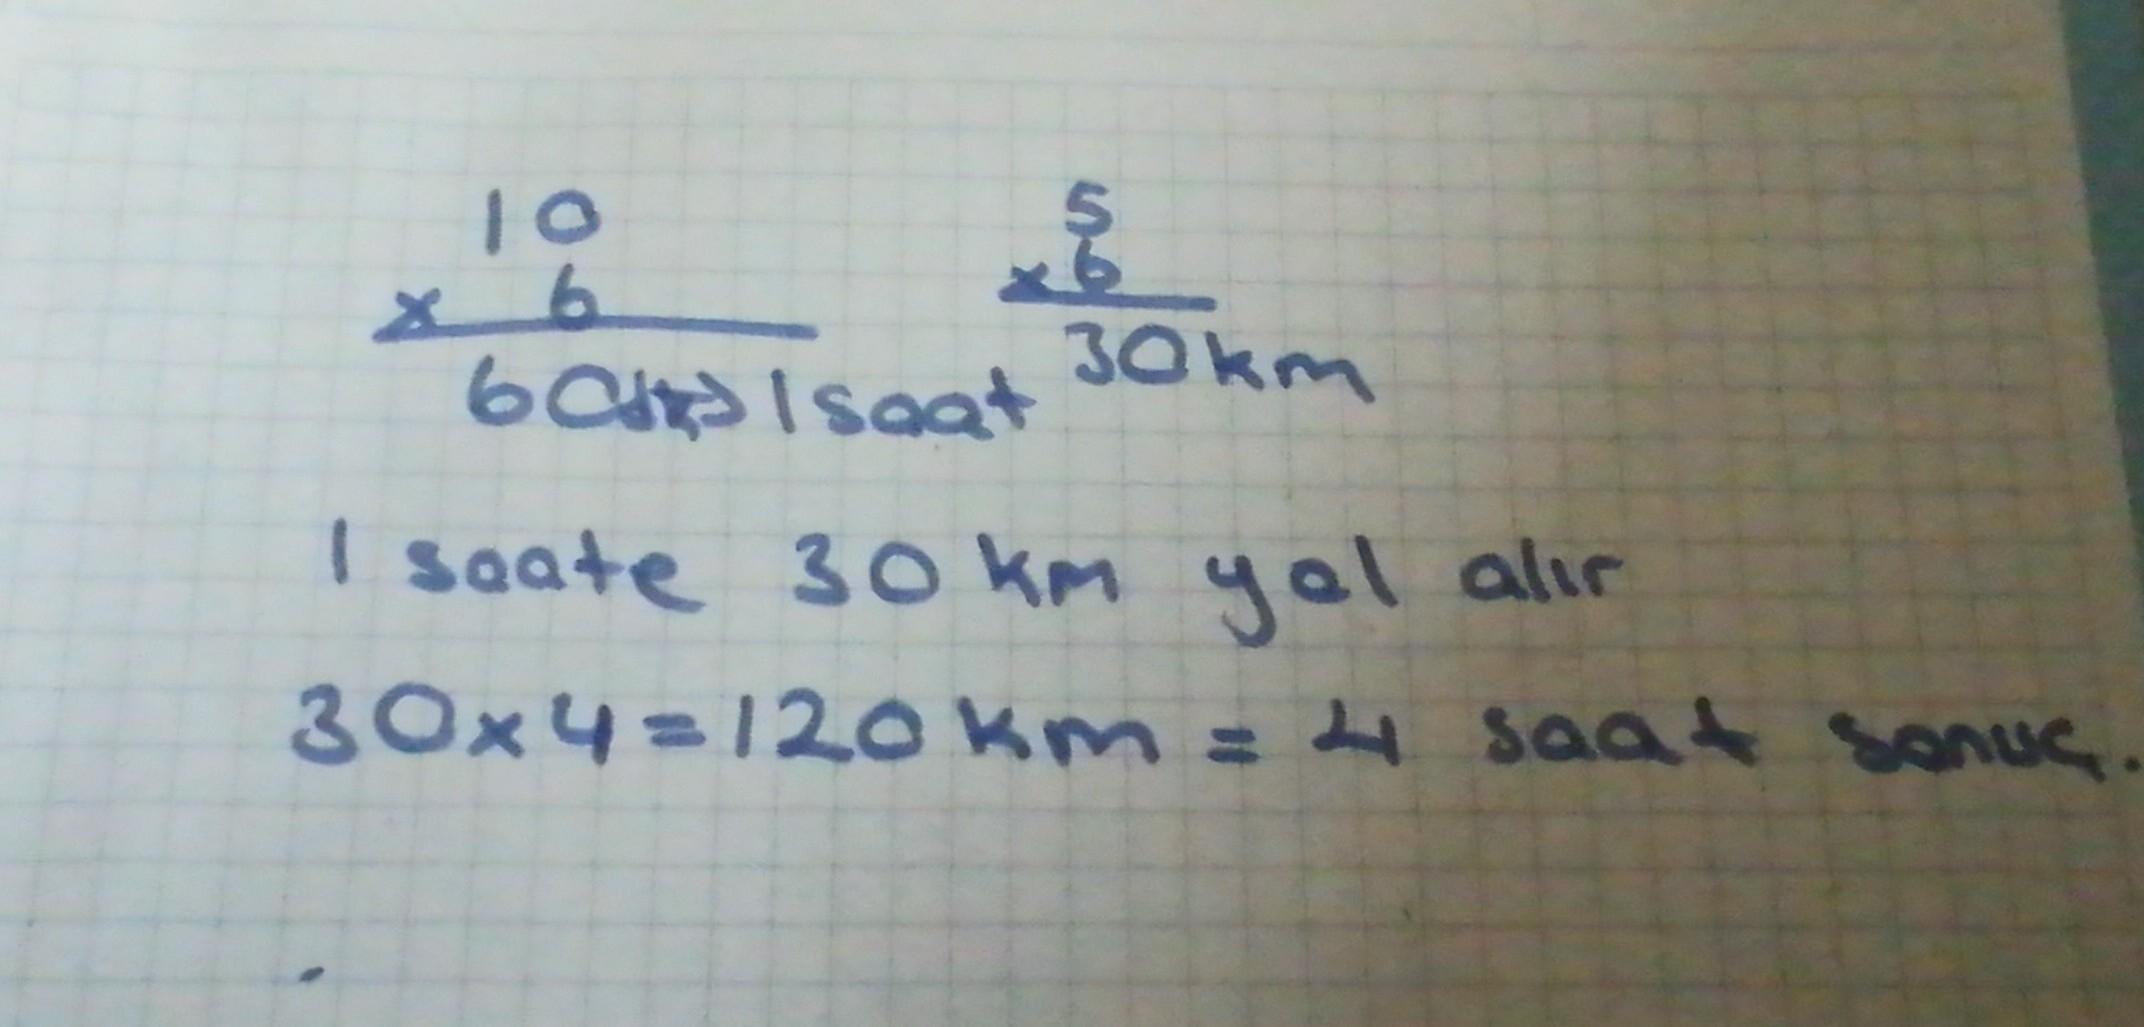 10
x 6
60dk→1saat
5
x 6
30km
1 saate 30 km yol alır
30x4=120km = 4 saat sonuç.